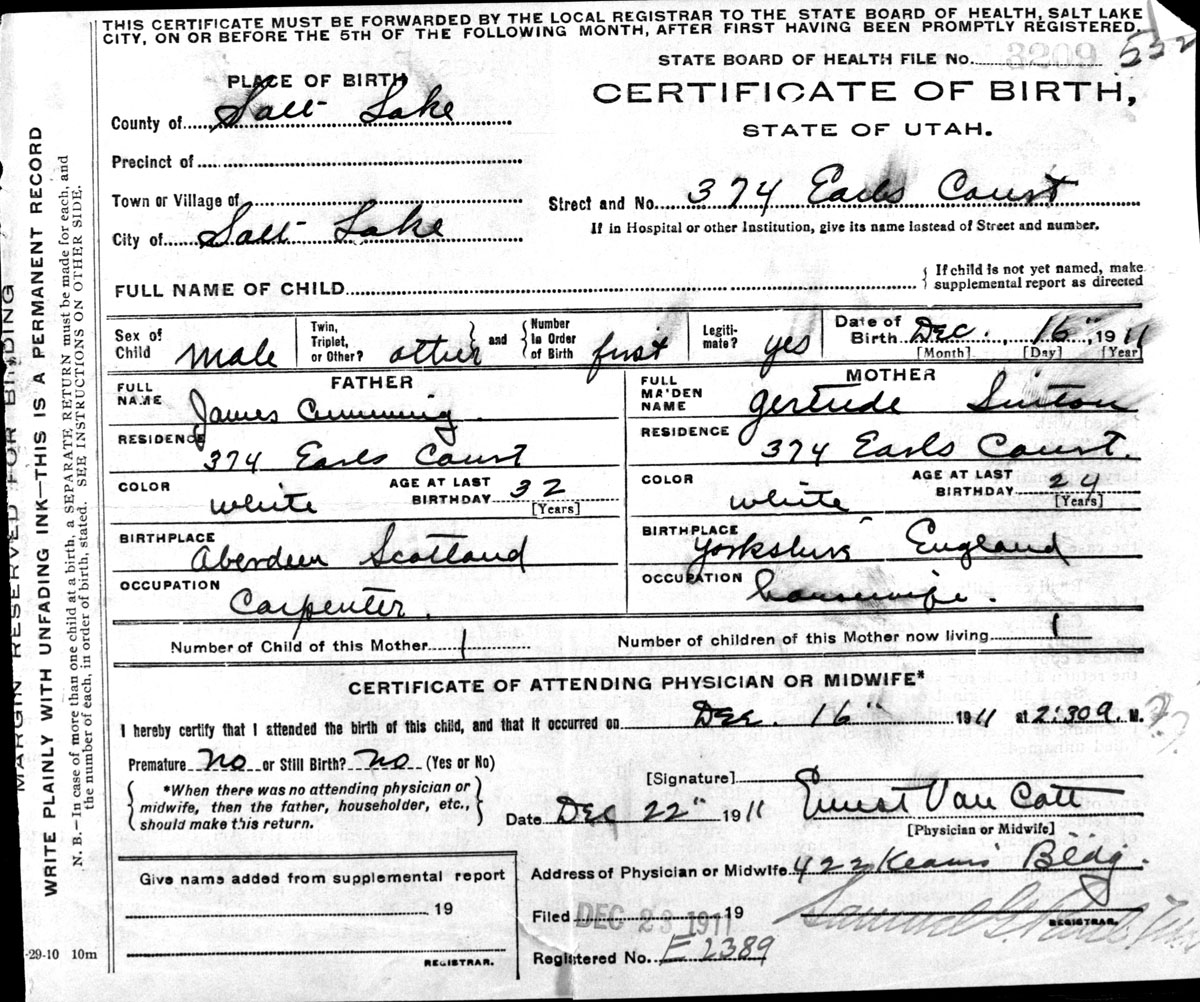 THIS CERTIFICATE MUST BE FORWARDED BY THE LOCAL REGISTRAR TO THE STATE BOARD OF HEALTH, SALT LAKE
CITY, ON OR BEFORE THE 5TH OF THE FOLLOWING MONTH, AFTER FIRST HAVING BEEN PROMPTLY REGISTERED.
STATE BOARD OF HEALTH FILE No. 3209 522
PLACE OF BIRTH
CERTIFICATE OF BIRTH,
STATE OF UTAH.
County of Salt Lake
Precinct of
Town or Village of
Street and No. 374 Earls Court
City of Salt Lake
If in Hospital or other Institution, give its name instead of Street and number.
FULL NAME OF CHILD
If child is not yet named, make
supplemental report as directed
Sex of Child male
Twin, Triplet, or Other? other and Number in Order of Birth first
Legiti-mate? yes
Date of Birth Dec. 16", 1911
[Month] [Day] [Year]
FATHER
FULL NAME James Cumming
RESIDENCE 374 Earls Court
COLOR white AGE AT LAST BIRTHDAY 32 [Years]
BIRTHPLACE Aberdeen Scotland
OCCUPATION Carpenter.
MOTHER
FULL MA'DEN NAME Gertrude Sinton
RESIDENCE 374 Earls Court.
COLOR white AGE AT LAST BIRTHDAY 24 [Years]
BIRTHPLACE Yorkshire England
OCCUPATION housewife.
Number of Child of this Mother 1 Number of children of this Mother now living 1
CERTIFICATE OF ATTENDING PHYSICIAN OR MIDWIFE*
I hereby certify that I attended the birth of this child, and that it occurred on Dec. 16" 1911 at 2:30 M.
Premature no or Still Birth? no (Yes or No)
*When there was no attending physician or
midwife, then the father, householder, etc.,
should make this return.
[Signature] Ernest Van Cott
Date Dec 22" 1911
[Physician or Midwife]
Give name added from supplemental report
19
REGISTRAR.
Address of Physician or Midwife 422 Kearns Bldg.
Filed DEC 23 1911 19
Samuel G.
REGISTRAR.
Registered No. E 2389
-29-10 10m
MARGIN RESERVED FOR BINDING
WRITE PLAINLY WITH UNFADING INK—THIS IS A PERMANENT RECORD
N. B.—In case of more than one child at a birth, a SEPARATE RETURN must be made for each, and
the number of each, in order of birth, stated. SEE INSTRUCTIONS ON OTHER SIDE.